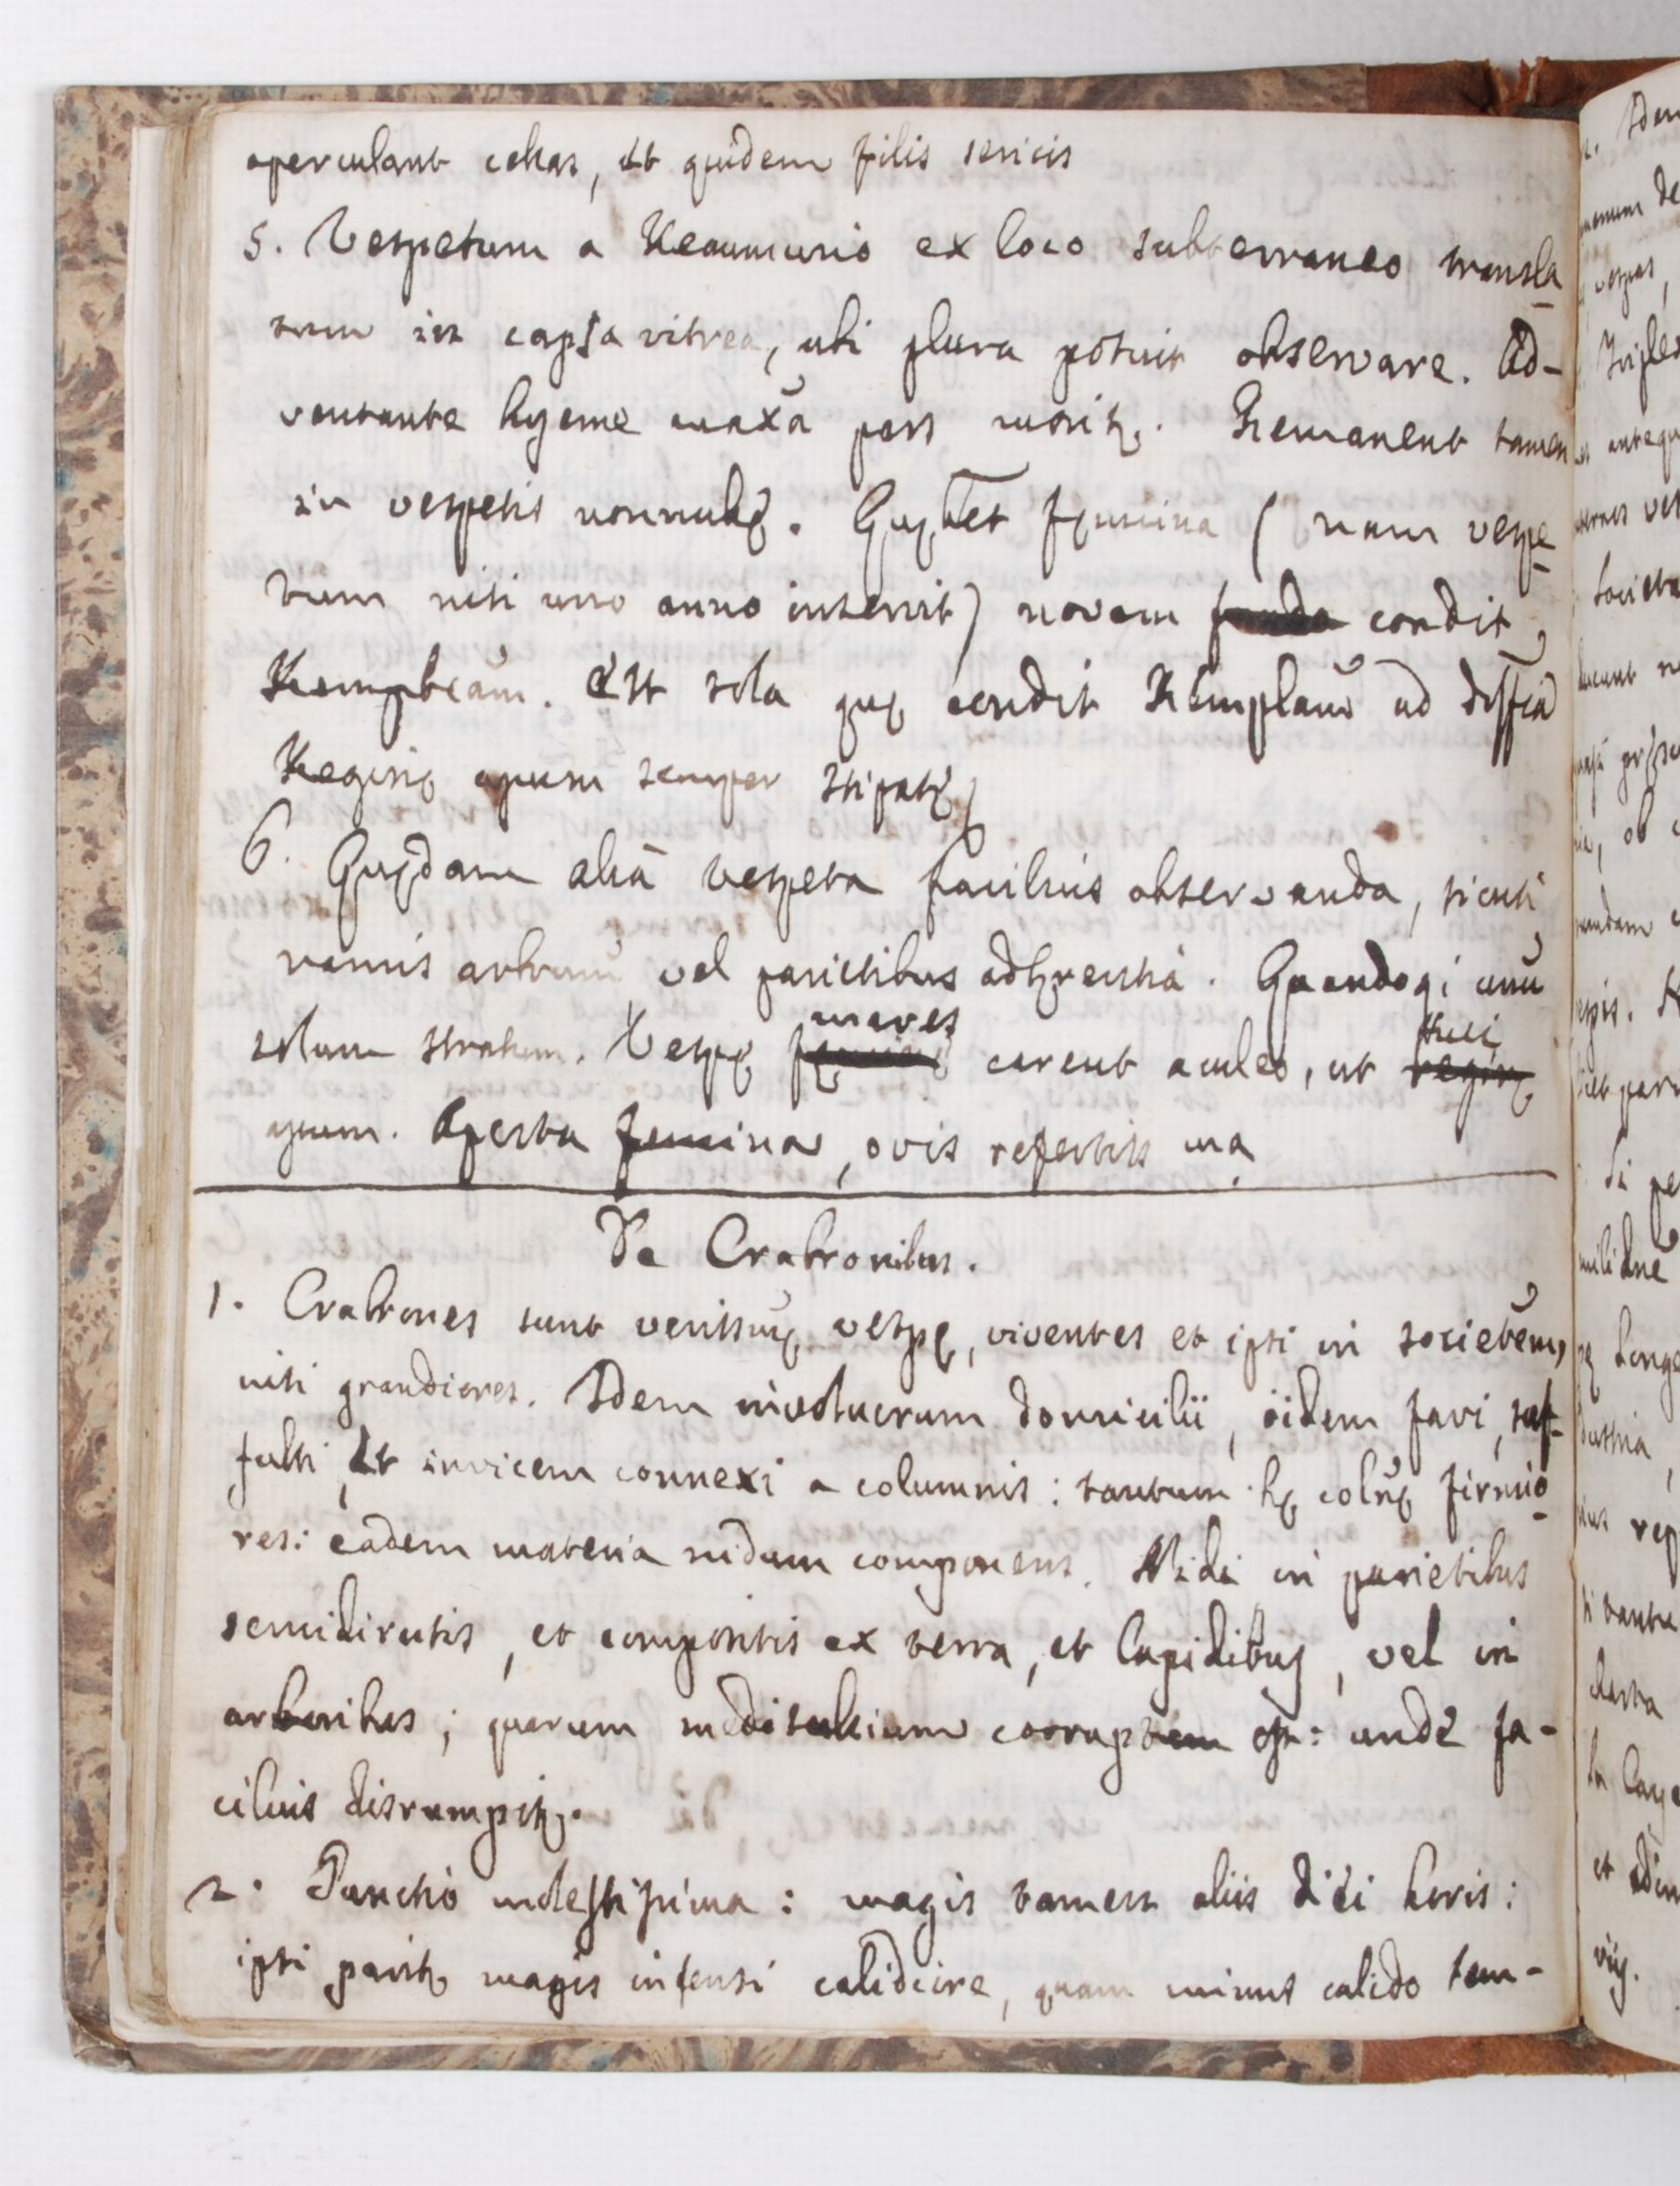 operculant cellas, et quidem filis sericis
5. Vespetum a Reaumurio ex loco subterraneo transla
tum in capsa vitrea, ubi plura potuit observare. Ad-
ventante hyeme maxa pars moritꝫ. Remanent tamen
in vespetis nonnullę. Quęlbet fęmina ( nam vespe
tum nisi uno anno inservit) novam condit
Rempbcam. Est sola quę condit Remplam ad diffcia
Reginę apum semper stipatę
6. Quędam alia vespeta facilius observanda, sicuti
ramis arborum vel parietibus adhęrentia. Quandoqi unu
solum stratum. Vespę mares carent aculeo, ut fuci
apum. Aperta femina, ovis refertiss ma
De Crabronibus.
1. Crabrones sunt verissimę vespę, viventes et ipsi in societem,
nisi grandiores. Idem involucrum domicilii, iidem favi, suf-
fulti, et invicem connexi a columnis: tantum hę colnę firmio
res: eadem materia nidum componens. Nidi in parietibus
semidirutis, et compositis ex terra, et lapidibus, vel in
arboribus; quarum meditullium corruptum est: unde fa-
cilius disrumpitꝫ.
2. Punctio molestissima: magis tamen aliis diei horis:
ipsi paritꝫ magis infensi calidiore, quam minus calido tem-